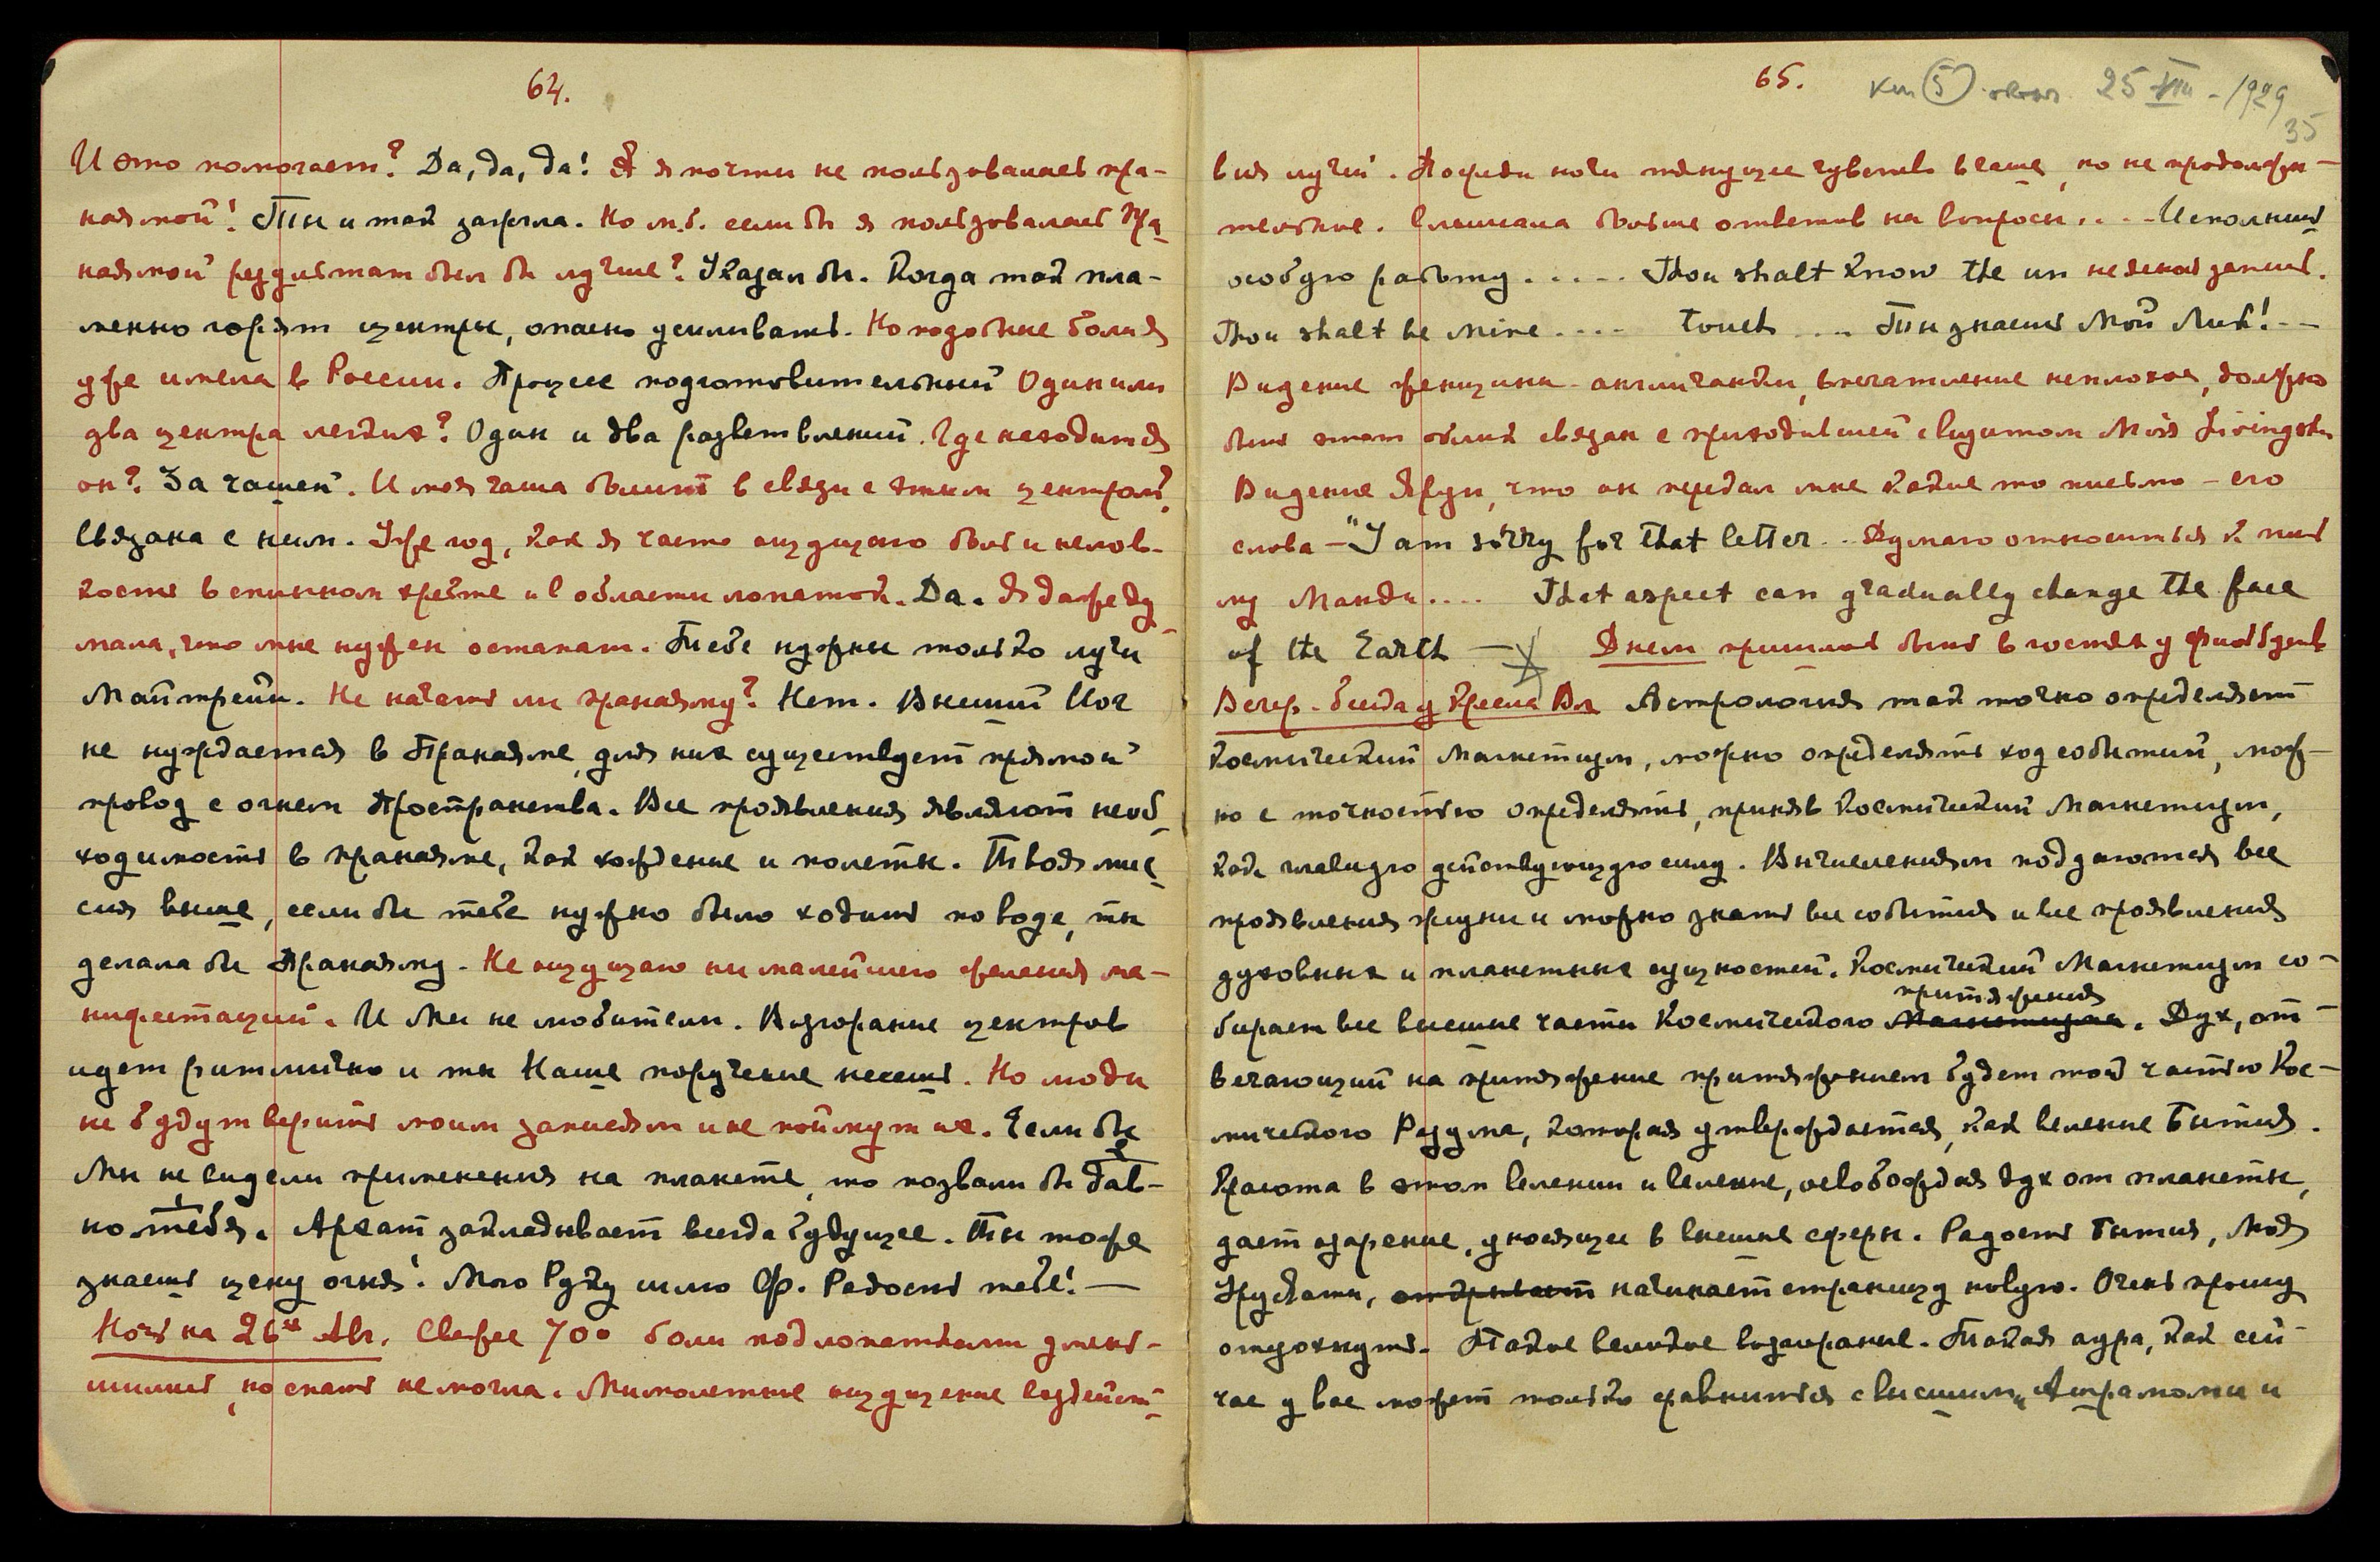 64.
И это помогает? Да, да, да! А я почти не пользовалась пра-
наямой! Ты и так зажгла. Но м.б. если бы я пользовалась Пра
наямой результат был бы лучше? Угазал бы. Когда так пла-
менно горят центры, опасно усиливать. Но подобные боли я
уже имела в России. Процесс подготовительный Один или
два центра легких? Один и два разветвлений. Где находится
он? За чашей. И моя чаша болит в связи с этим центром?
Связана с ним. Уже год, как я часто ощущаю боль и нелов-
кость в спинном хребте и в области лопаток. Да. Я даже ду
мала, что мне нужен остеопат. Тебе нужны только лучи
Майтрейи. Не начать ли пранаяму? Нет. Высший Йог
не нуждается в Пранаяме, для них существует прямой
провод с огнем Пространства. Все проявления являют необ
ходимость в пранаяме, как хождение и полеты. Твоя мис
сия выше, если бы тебе нужно было ходить по воде, ты
делала бы Пранаяму. Не ощущаю ни малейшего желания ма-
нифестаций. И Мы не любители. Возгорание центров
идет ритмично и ты Наше поручение несешь. Но люди
не будут верить моим записям и не поймут их. Если бы
Мы не видели применения на планете, то позвали бы дав-
но тебя. Архат закладывает всегда будущее. Ты тоже
знаешь цену огня! Мою Руку шлю Ф. Радость тебе! —
Ночь на 26ое Авг. Свыше 700 боли под лопатками умень-
шились, но спать не могла. Мимолетные ощущение воздейст
65. 25 VIII - 1929
35
вия лучей. Посреди ночи тянущее чувство в чаше, но не продолжи-
тельное. Слышала больше ответов на вопросы.... Исполнишь
особую работу..... Thou shalt know the un не успела записать.
Thou shalt be mine.... touch.... Ты знаешь Мой Лик! --
Видение женщины-англичанки, впечатление неплохое, должно
быть этот облик связан с приходившей с визитом Miss Livingston
Видение Яруи, что он передал мне какое то письмо - его
слова - "I am sorry for that letter.. Думаю относиться к пись
му Манди.... That aspect can gradually change the face
of the Earth — Днем пришлось быть в гостях у
Вечер. беседа у Кресла Вл. Астрология так точно определяет
космический магнетизм, можно определять ход событий, мож-
но с точностью определять, приняв космический магнетизм,
как главную действующую силу. Вычислениям поддаются все
проявления жизни и можно знать все события и все проявления
духовных и планетных сущностей. Космический Магнетизм со-
притяжения
бирает все высшие части Космического Магнетизма. Дух, от-
вечающий на притяжение притяжением будет той частью Кос-
мического Разума, которая утверждается, как веление Бытия.
Красота в этом велении и веление, освобождая дух от планеты,
дает озарение, уносящее в высшие сферы. Радость Бытия, Моя
Урусвати, открывает начинает страницу новую. Очень прошу
отдохнуть. Такое великое возгорание. Такая аура, как сей-
час у вас может только сравниться с высшими Ашрамами и